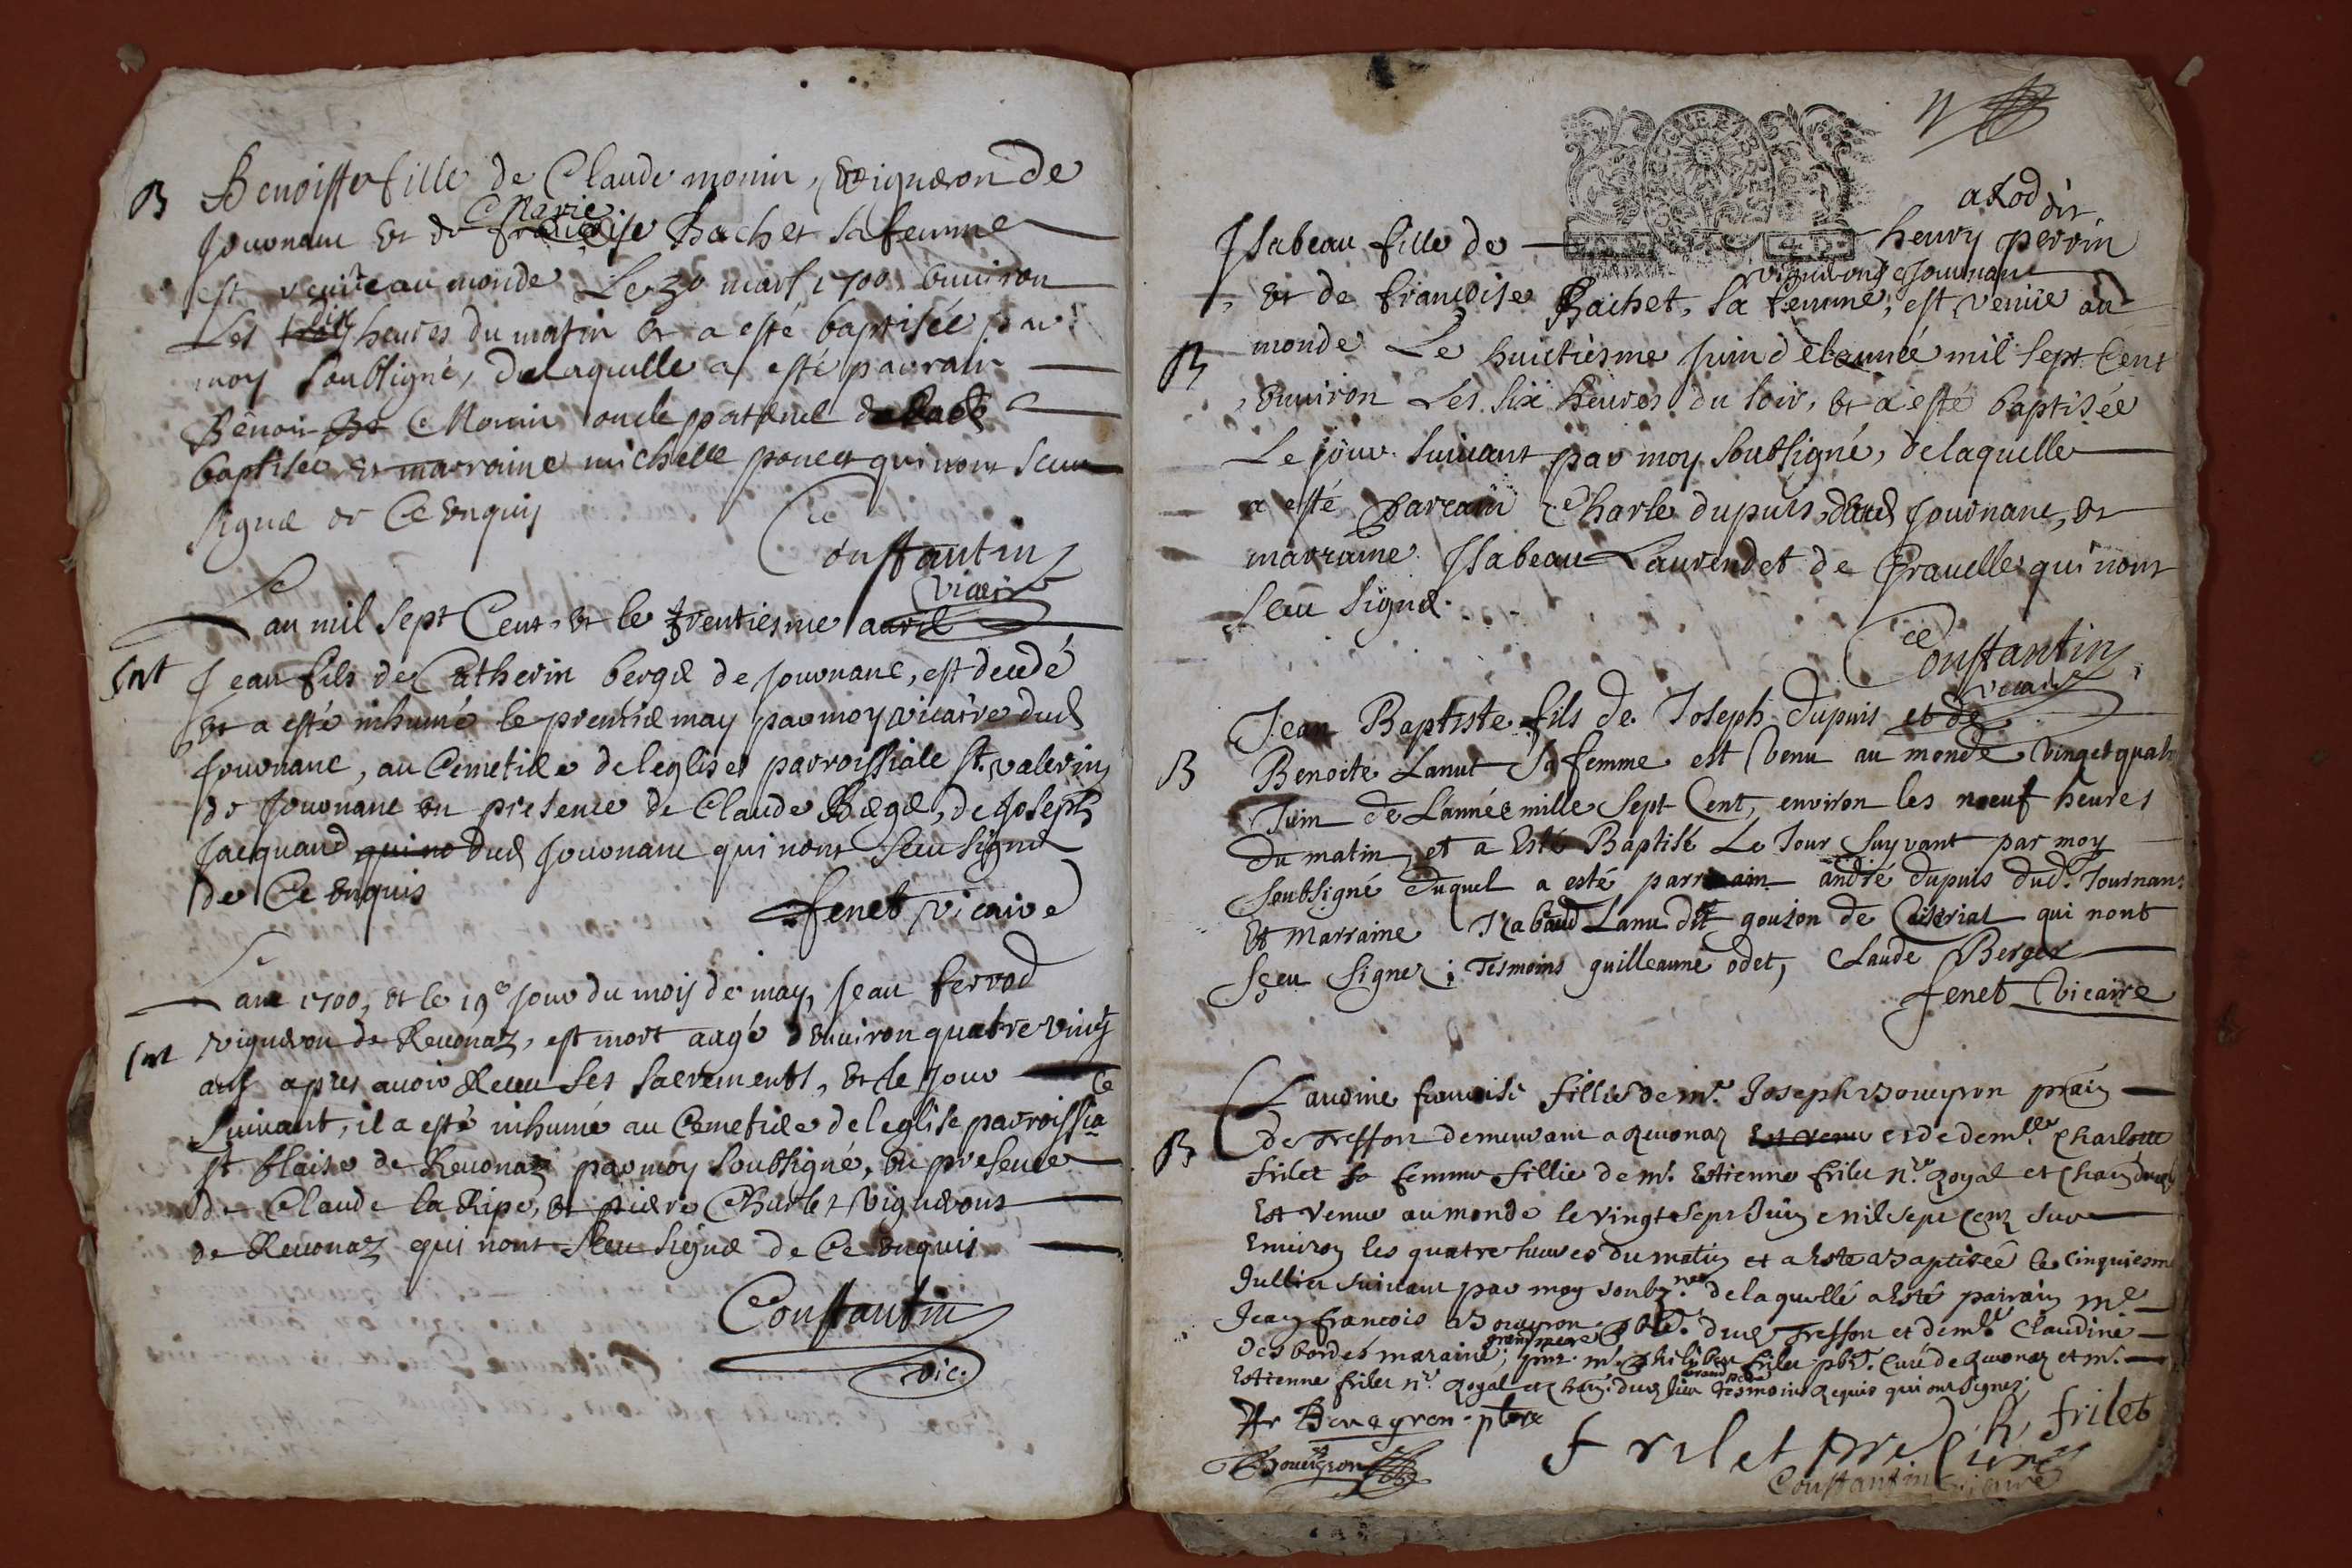 B Benoiste fille de Claude monin, vigneron de
Jouvnanc et de Marie Bachet sa femme
est venüe au monde Le 30 mars 1700 environ
Les dix heures du matin et a esté baptisée par
moy soubsigné, de laquelle a esté parrain
Benoit Monin oncle paternel de lad
baptisée et marraine michelle poncet qui n'ont sceu
signer de Ce enquis
Constantin
vicaire
Lan mil sept Cent et le trentiesme avril
Int Jean fils de Catherin berger de Jouvnanc, est decedé
et a esté inhumé le premier may par moy vicaire dud
Jouvnanc, au Cimetiere de leglise parroissiale St. valerin
de Jouvnanc en presence de Claude Berger, de Joseph
Jacquand qui no dud Jouvnanc qui nont sceu signer
de Ce enquis
fenet vicaire
Lan 1700, et le 19e jour du mois de may, Jean fervod
Int vigneron de Revonaz, est mort aagé denviron quatre vingt
ans apres avoir Receu ses sacrements, et le jour
suivant, il a esté inhumé au Cemetiere de leglise parroissiale
st blaise de Revonaz par moy soubsigné, en presence
de Claude la Ripe, et pierre Charlet vignerons
de Revonaz qui nont sceu signer de Ce enquis
Constantin
vic.
akod dit
Isabeau fille de henry perrin
vigneron de Jouvnanc
et de francoise Bachet, sa femme, est venüe au
B monde Le huictiesme Juin de lannée mil sept Cent
environ Les six heures du soir, et a esté baptisée
Le jour suivant par moy soubsigné, de laquelle
a esté parrain Charle dupuis dud Jouvnanc, et
marraine Isabeau Laurendet de Gravelle qui nont
sceu signer.
Constantin
vicaire
Jean Baptiste fils de Joseph dupuis et de
B Benoite Lanut Sa femme est venu au monde vingetquatr
Juin de Lannée mille Sept Cent, environ les noeuf heures
du matin, et a Esté Baptisé Le Jour suyvant par moy
soubsigné duquel a esté parrain andré dupuis dud. Journans
Et marraine Lanu dit goujon de Ceiseriat qui nont
sçeu signer; Tesmoins guilleaume odet, Claude Berger
fenet vicaire
Claudine francoise fillie de mr. Joseph Boueyron
B de Tresson demeurant a Revonaz Est venu et de demlle Charlotte
frilet sa femme fillie de mr. Estienne frilet nre. Royal et
Est venue au monde le vingt sept Juin mil sept cent sur
Environ les quatre heures du matin et a Esté Baptisée le cinquiesme
Jullier suivant par moy soubz. de laquelle a Esté pairain mre
Jean francois Boueyron pbre. dud Tresson et demlle Claudine
grand mere
Des bordes maraine; mr. philibert frilet pbre. Curé de Revonaz et mr.
grand pere
Estienne frilet nre. Royal et dud lieu tesmoins Requis qui ont signez
Boueyron ptre
R, frilet
Boueyron
frilet pre Curé
Constantin vicaire